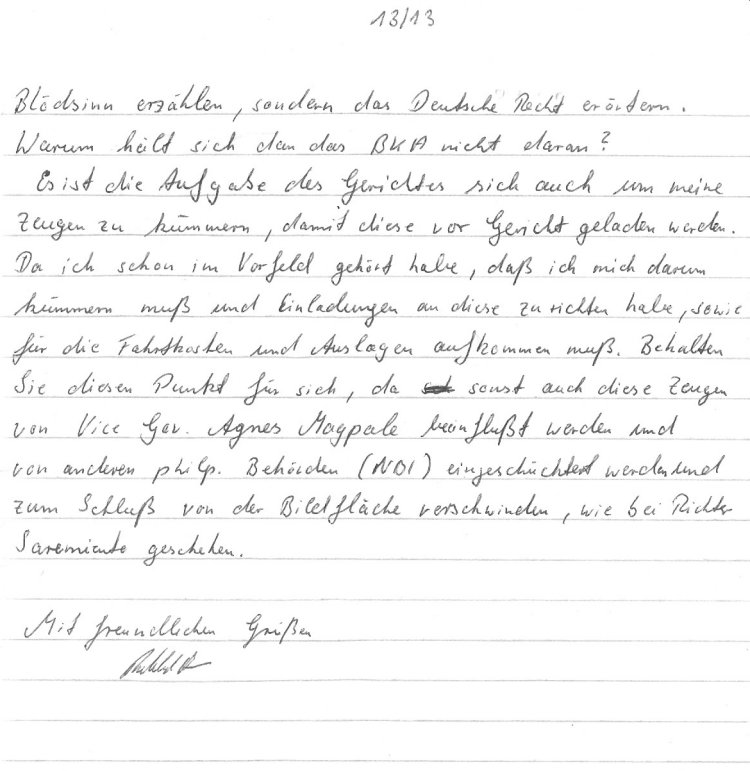 13/13
Blödsinn erzählen, sondern das Deutsche Recht erörtern.
Warum hält sich dan das BKA nicht daran?
Es ist die Aufgabe des Gerichtes sich auch um meine
Zeugen zu kümmern, damit diese vor Gericht geladen werden.
Da ich schon im Vorfeld gehört habe, daß ich mich darum
kümmern muß und Einladungen an diese zu richten habe, sowie
für die Fahrtkosten und Auslagen aufkommen muß. Behalten
Sie diesen Punkt für sich, da sonst auch diese Zeugen
von Vice Gov. Agnes Magpale beinflußt werden und
von anderen philp. Behörden (NBI) eingeschüchtert werden und
zum Schluß von der Bildfläche verschwinden, wie bei Richter
Saremiento geschehen.
Mit freundlichen Grüßen